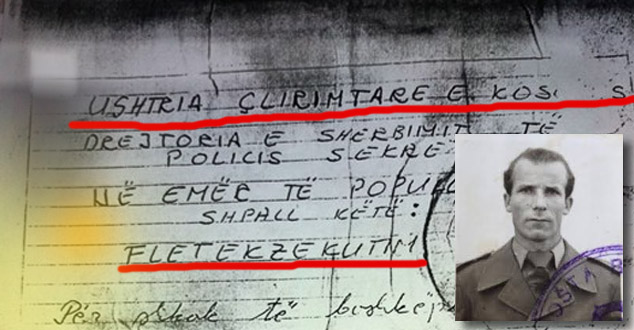 USHTRIA ÇLIRIMTARE E KOS S
DREJTORIA E SHERBIMIT TË
POLICIS SEKRE
NË EMËR TË POPULL
SHPALL KËTË:
FLETEKZEKUTIM
Për shkak të bashkëp